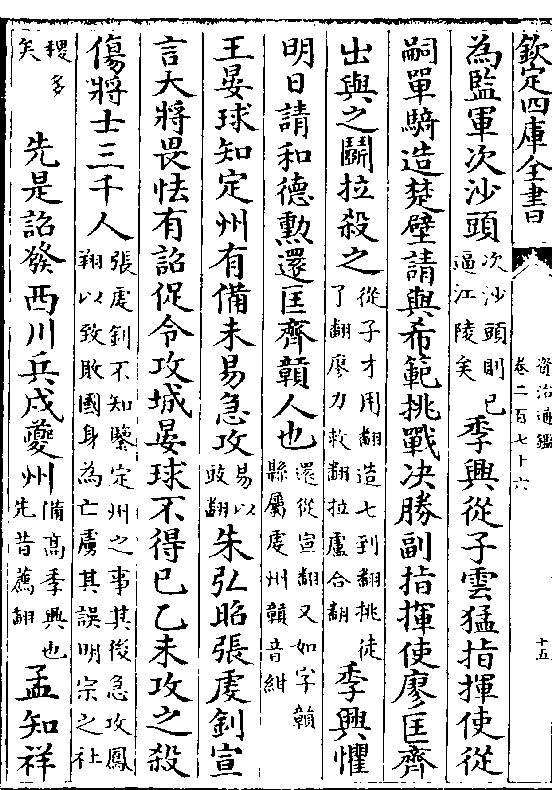 欽定四庫全書
資治通鑑
卷二百七十六
十五
為監軍次沙頭次沙頭則已逼江陵矣季興從子雲猛指揮使從
嗣單騎造楚壁請與希範挑戰决勝副指揮使廖匡齊
出與之鬭拉殺之從子才用翻造七到翻挑徒了翻廖力救翻拉盧合翻季興懼
明日請和德勲還匡齊贑人也還從宣翻又如字贑縣屬䖍州贑音紺
王晏球知定州有備未易急攻易以豉翻朱弘昭張䖍釗宣
言大將畏怯有詔促令攻城晏球不得已乙未攻之殺
傷將士三千人張䖍釗不知鑒定州之事其後急攻鳳翔以致敗國身為亡虜其誤明宗之社
稷多矣先是詔發西川兵戍夔州備高季興也先昔薦翻孟知祥